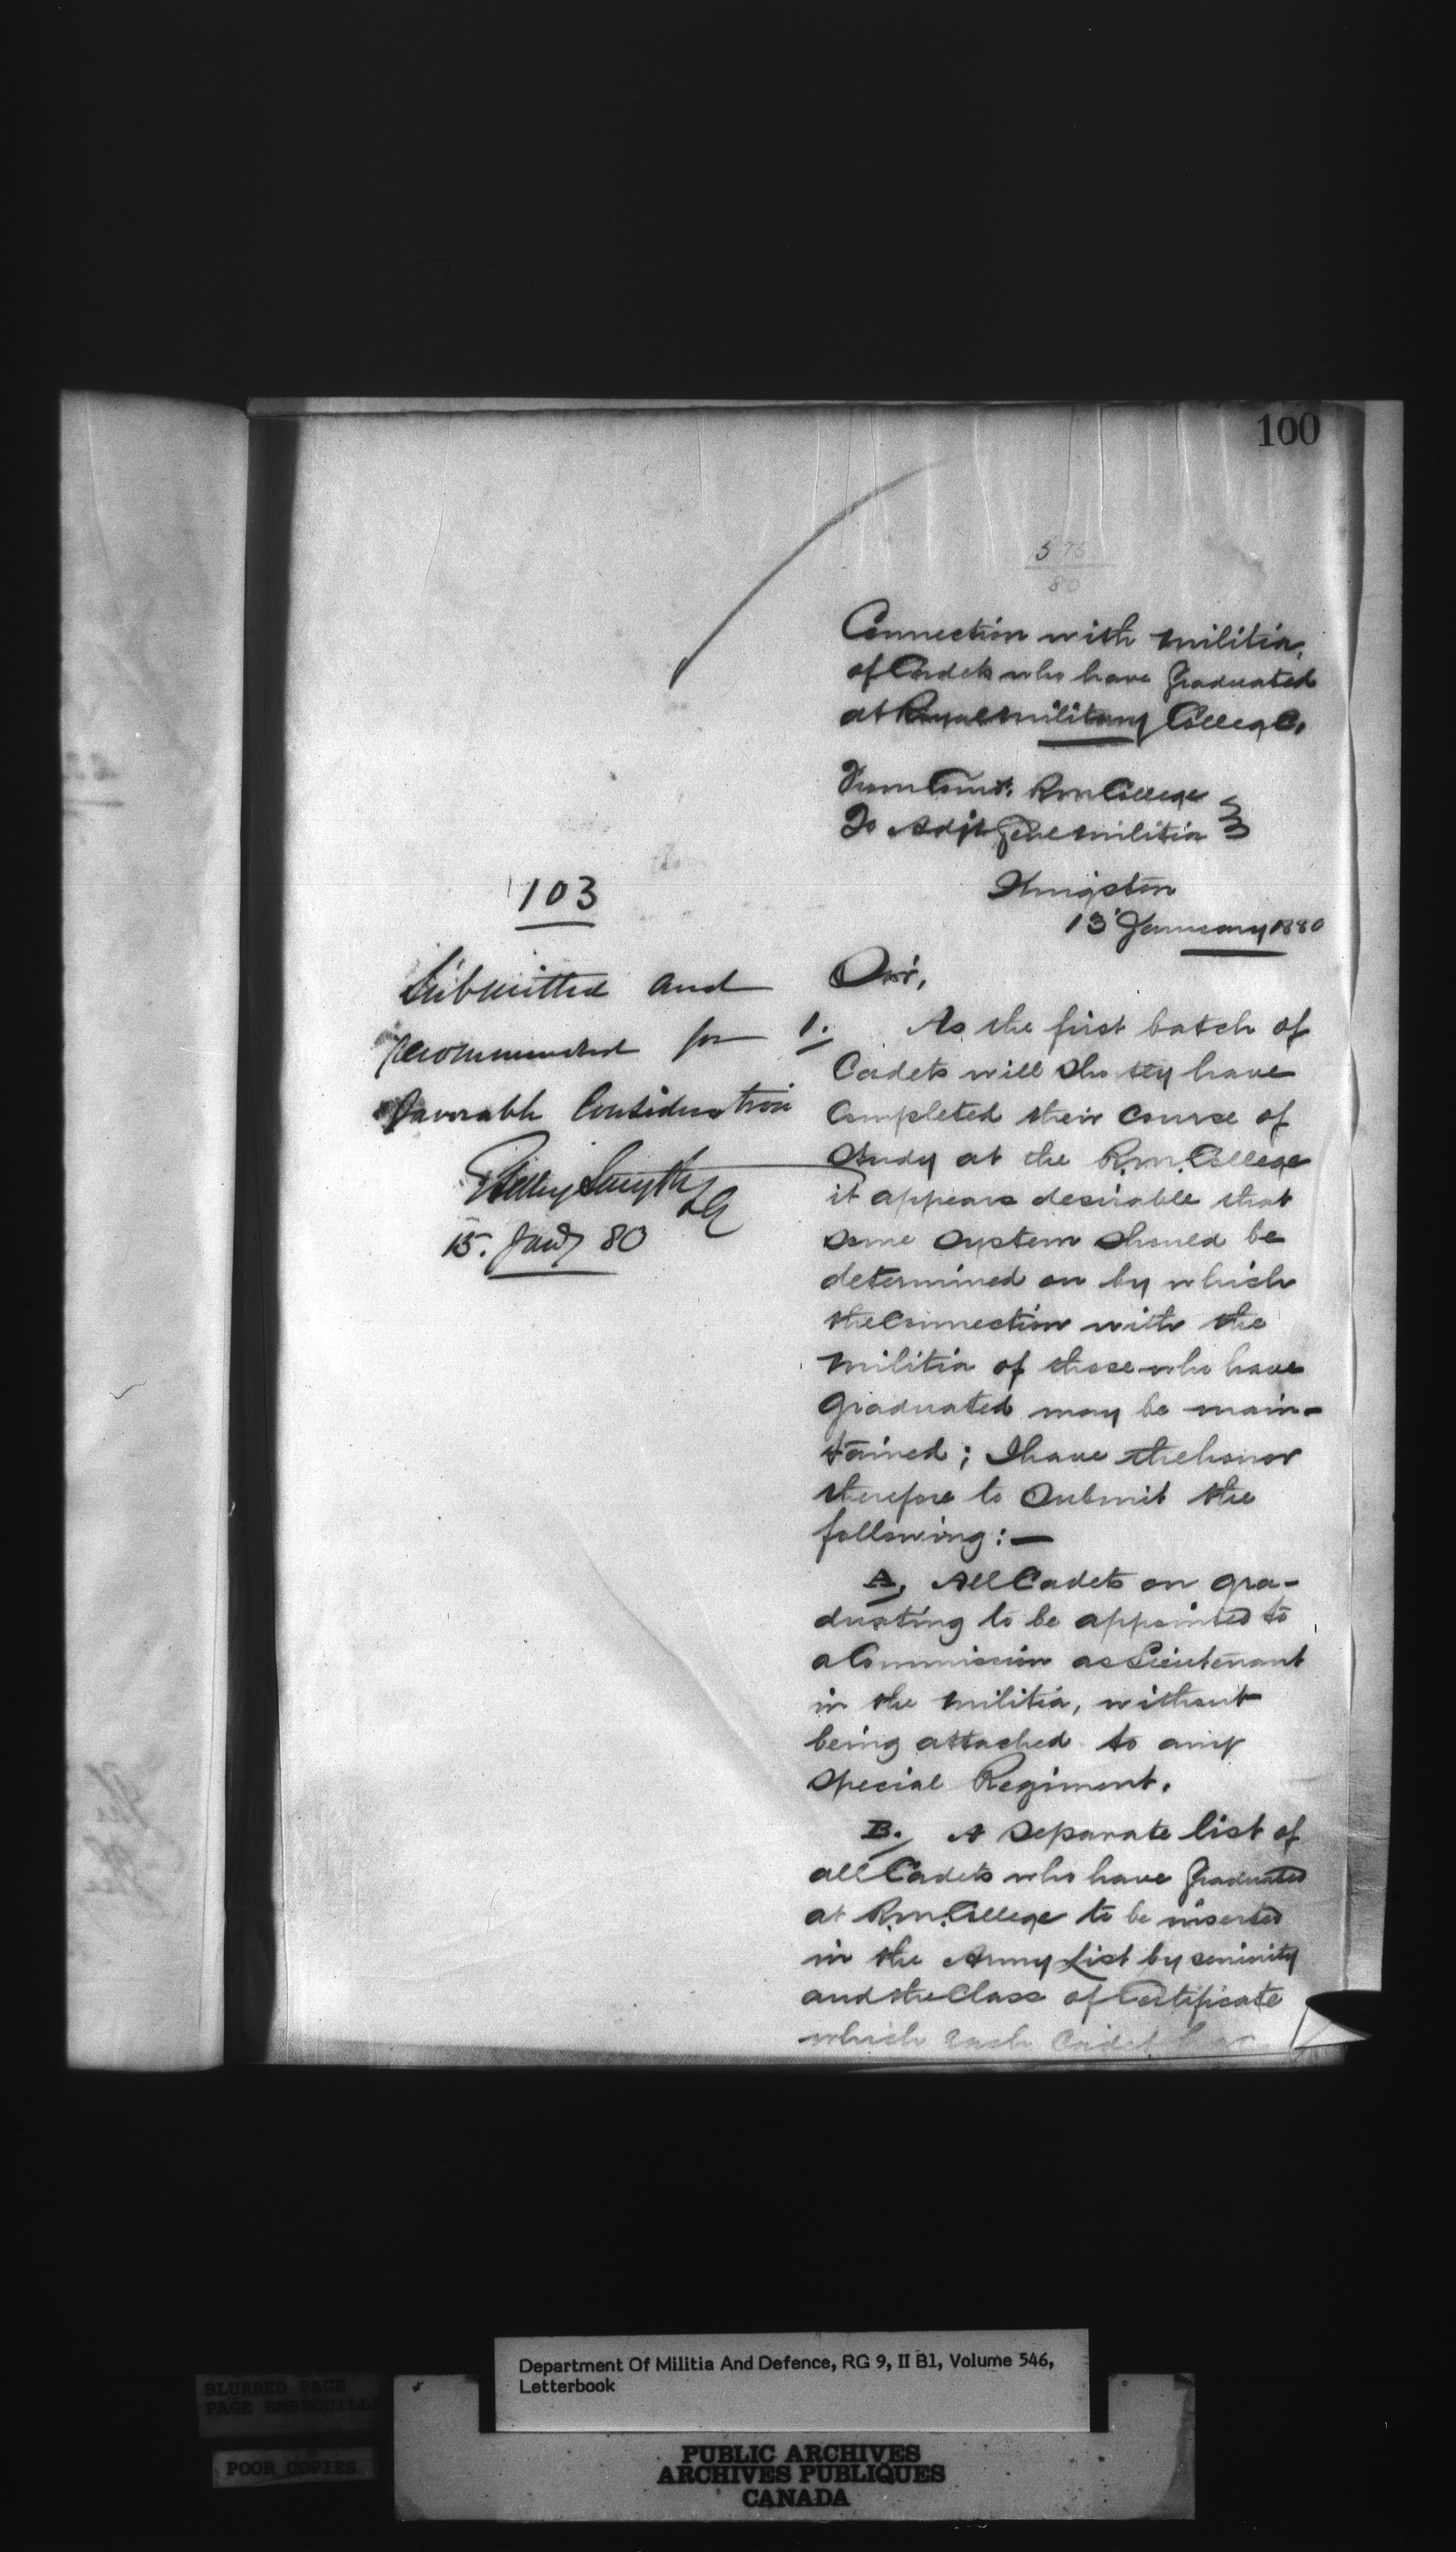 100
5 75
80
Connection with Militia,
of Cadets who have Graduated
at Royal Military College.
From Comt. R.M. College
To Adjt Genl Militia
Kingston
13 January 1880
103
Submitted and
recommended for
favorable Consideration
Selby Smyth
LG
15. Jany 80
Sir,
1. As the first batch of
Cadets will shortly have
Completed their Course of
Study at the R.M. College
it appears desirable that
some system should be
determined on by which
the Connection with the
Militia of those who have
Graduated may be main-
tained; I have the honor
therefore to submit the
following:—
A. All Cadets on gra-
duating to be appointed to
a Commission as Lieutenant
in the Militia, without
being attached to any
special Regiment.
B. A separate list of
all Cadets who have Graduated
at R.M. College to be inserted
in the Army List by seniority
and the Class of Certificate
which each Cadet has
Department Of Militia And Defence, RG 9, II B1, Volume 546,
Letterbook
BLURRED PAGE
PAGE EMBROUILLÉE
POOR COPIES
PUBLIC ARCHIVES
ARCHIVES PUBLIQUES
CANADA